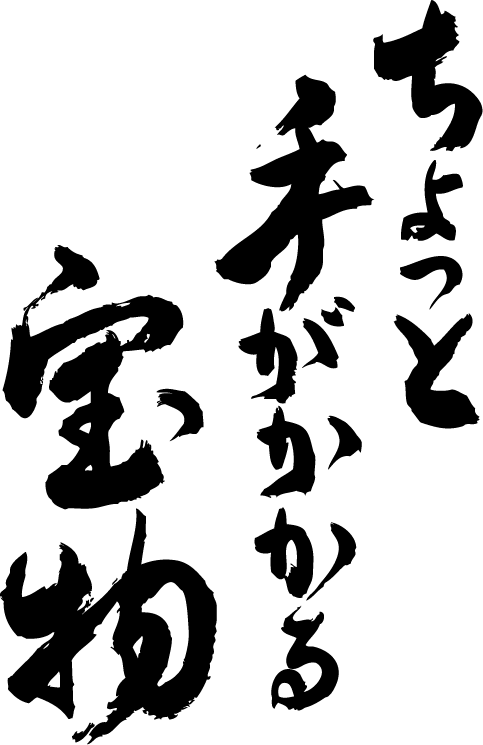 ちょっと
手がかかる
宝物